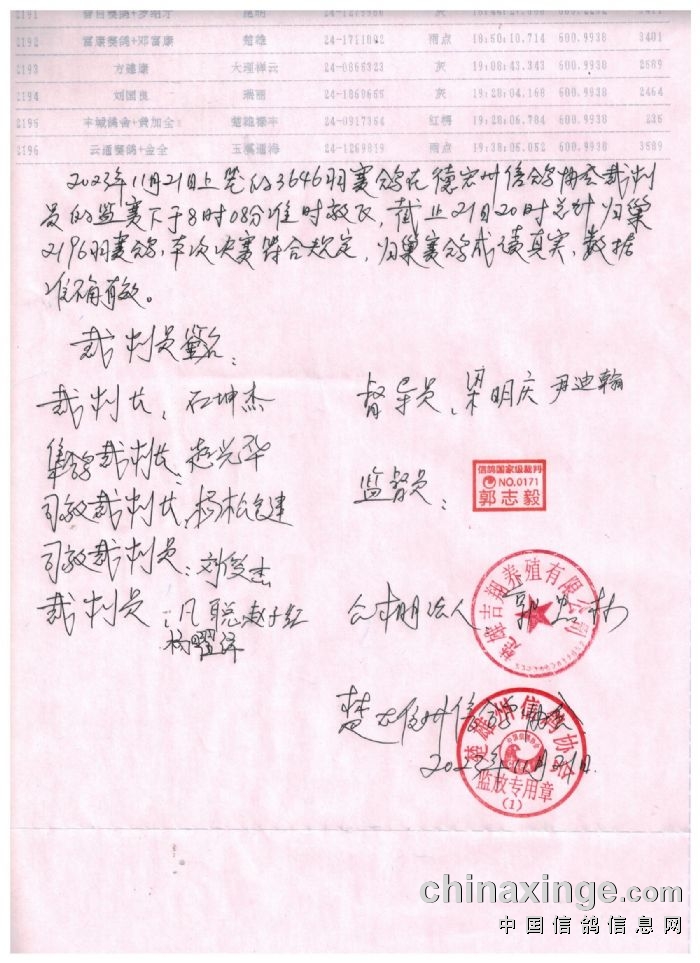 2191
2192 富康赛鸽+邓富康 楚雄 24-1711802 雨点 18:50:10.714 600.9938 3401
2193 方建康 大理祥云 24-0866323 灰 19:08:43.343 600.9938 2589
2194 刘国良 瑞丽 24-1860665 灰 19:28:04.168 600.9938 2464
2195 丰城鸽舍+黄加全 楚雄禄丰 24-0917364 红楞 19:28:06.784 600.9938 236
2196 云通赛鸽+金全 玉溪通海 24-1269819 雨点 19:38:06.052 600.9938 3589
2023年11月21日上笼的3646羽赛鸽在德宏州信鸽协会裁判
员的监赛下于8时08分准时放飞，截止21日20时总计归巢
2196羽赛鸽，本次决赛符合规定，归巢赛鸽成绩真实，数据
准确有效。
裁判员签名：
裁判长：石坤杰 督导员：梁明庆 尹迪翰
集鸽裁判长：赵兴华
信鸽国家级裁判
NO.0171
郭志毅
监督员：
司放裁判长：杨松建
司放裁判员：刘俊杰
裁判员：凡聪 赵子红
杨曜泽
公棚法人
楚雄吉翔养殖有限公司
楚雄州信鸽协会
2023年11月21日
楚雄州信鸽协会
监放专用章
(1)
chinaxinge.com
中国信鸽信息网